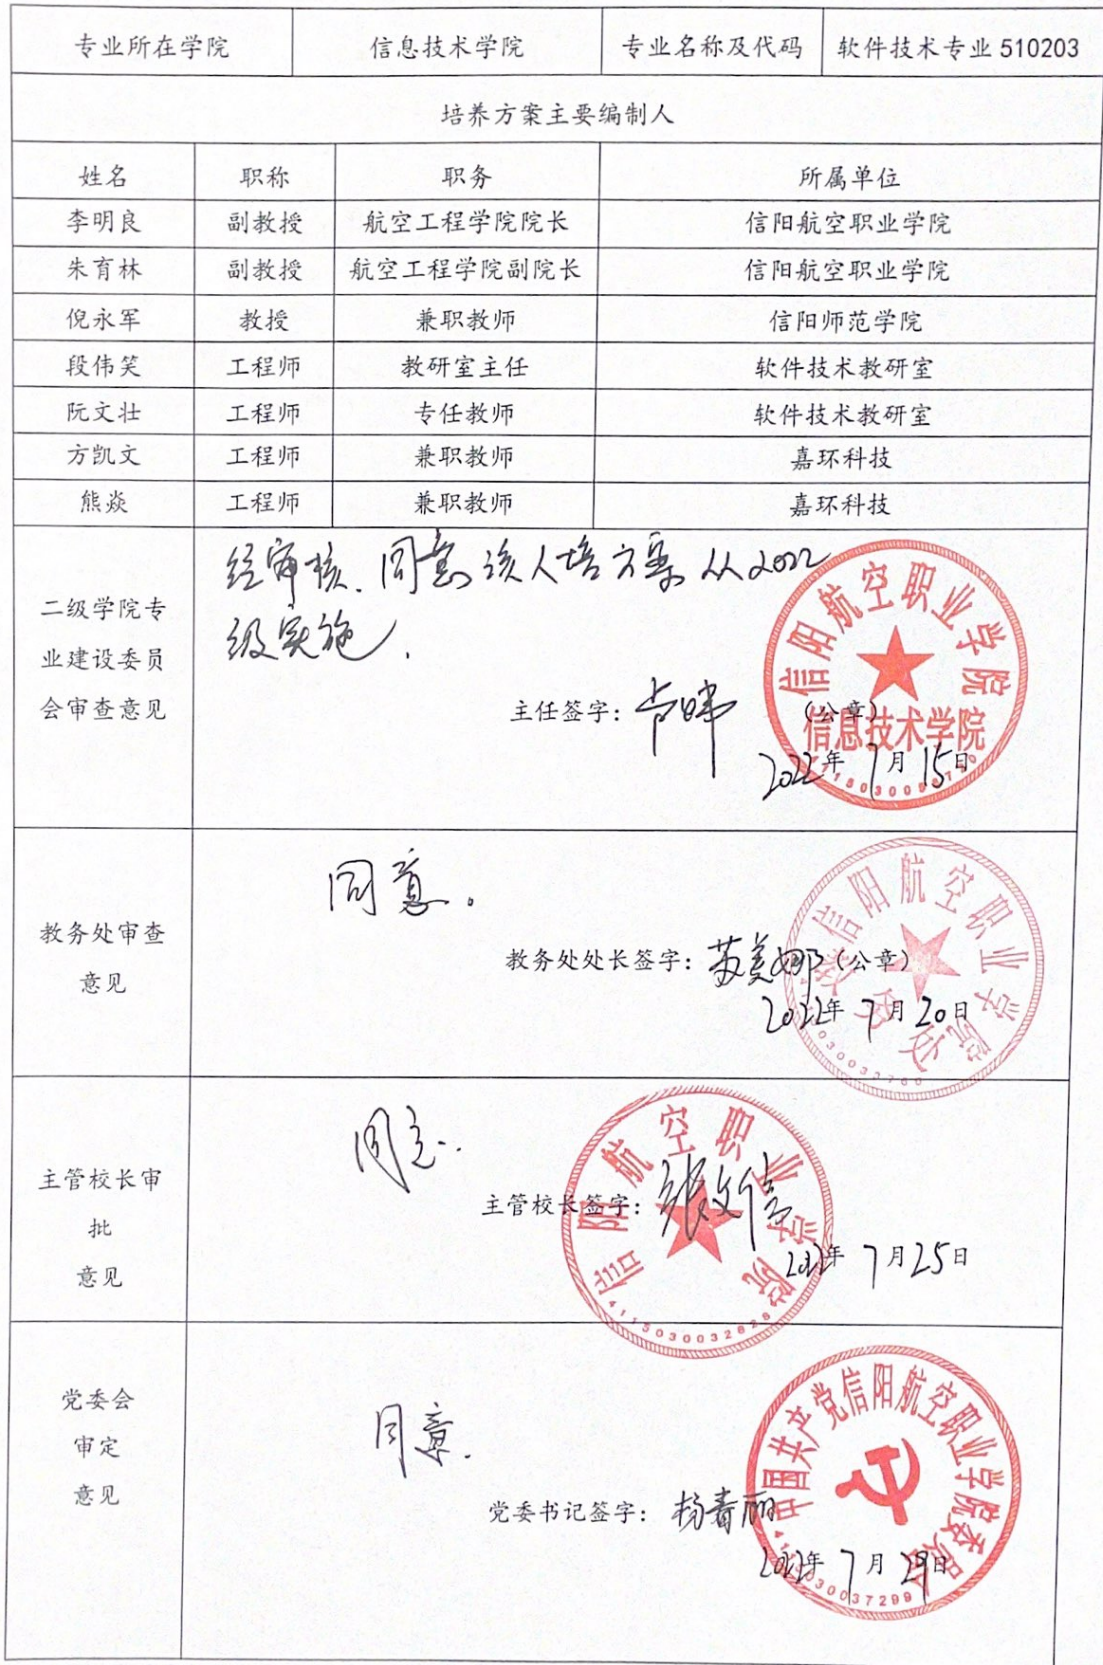 专业所在学院 信息技术学院 专业名称及代码 软件技术专业 510203
培养方案主要编制人
姓名 职称 职务 所属单位
李明良 副教授 航空工程学院院长 信阳航空职业学院
朱育林 副教授 航空工程学院副院长 信阳航空职业学院
倪永军 教授 兼职教师 信阳师范学院
段伟笑 工程师 教研室主任 软件技术教研室
阮文壮 工程师 专任教师 软件技术教研室
方凯文 工程师 兼职教师 嘉环科技
熊焱 工程师 兼职教师 嘉环科技
二级学院专
业建设委员
会审查意见
经审核.同意该人培方案从2022
级实施.
主任签字:
(公章)
2022年7月15日
信阳航空职业学院
信息技术学院
教务处审查
意见
同意。
教务处处长签字:苏美娜(公章)
2022年7月20日
信阳航空职业学院
主管校长审
批
意见
同意.
主管校长签字:张文信
2022年7月25日
信阳航空职业学院
党委会
审定
意见
同意.
党委书记签字:杨春丽
2022年7月29日
中国共产党信阳航空职业学院委员会